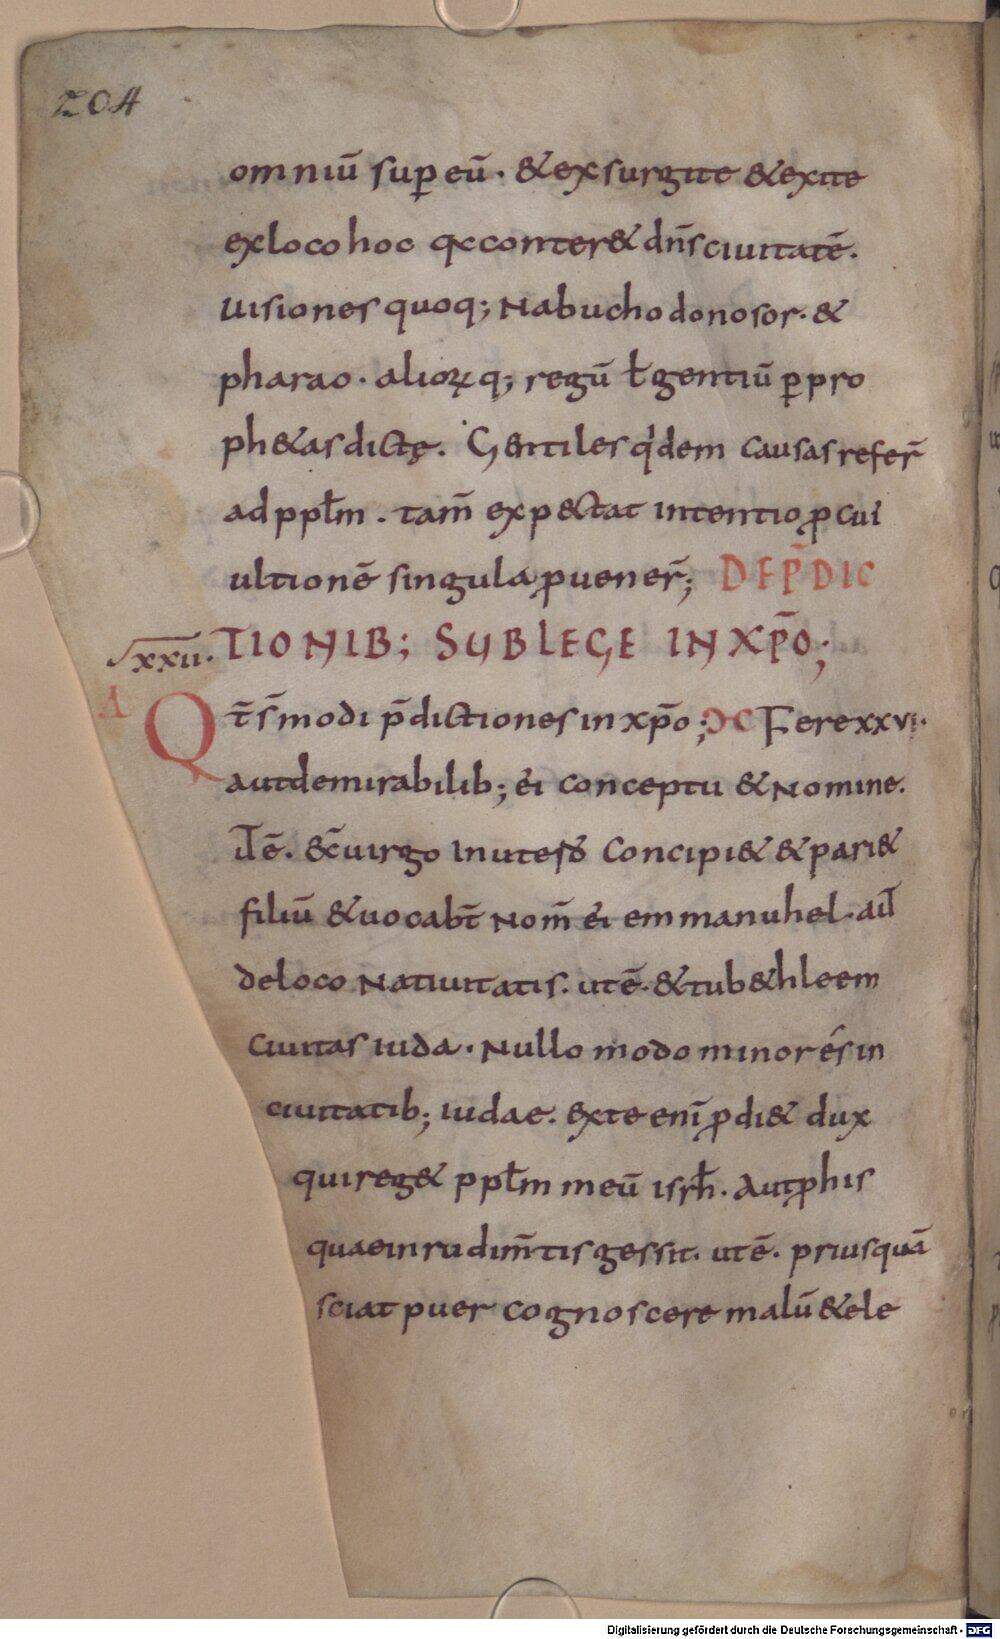 204
omniū sup eū · & exsurgite & exite
ex loco hoc qc conter& dn̄s ciuitatē.
Uisiones quoq; Nabuchodonosor · &
pharao · alioꝝ q; regū ł gentiū ꝑ pro
ph&as dictę. Gentiles qͥdem causas refer̄
ad ppłm . tam̄ exp&ctat intentio ꝓ cui
ultionē singula ꝓuener̄; DE P̄DIC
xxxii. TIONIB; SUB LEGE IN XP̄O;
Δ Qt̄ s̄ modi p̄dictiones in xp̄o; ƆC Fere xxvi.
aut de mirabilib; ei conceptu & Nomine.
I̅ē. & c̄ uirgo In utero Concipi& & pari&
filiū & uocabt̄ Nom̄ ei emmanuhel · aut
de loco Natiuitatis. ut ē. & tu b&hleem
Ciuitas iuda · Nullo modo minor és in
ciuitatib; iudae. ex te eni ꝓdi& dux
qui reg& ppłm meū isrh̄. Aut ꝓ his
quae in rudim̄tis gessit. ut ē. priusquā
sciat puer cognoscere malū & ele
Digitalisierung gefördert durch die Deutsche Forschungsgemeinschaft - DFG